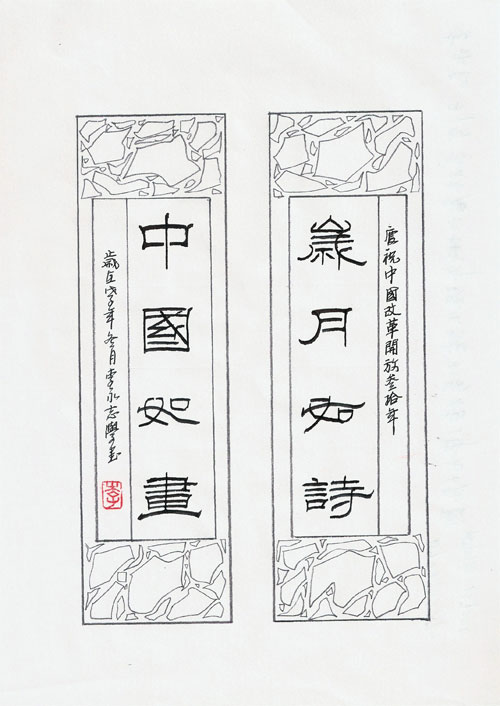 慶祝中國改革開放叁拾年
歲月如詩
中國如畫
歲在戊子年冬月李永志學書
李